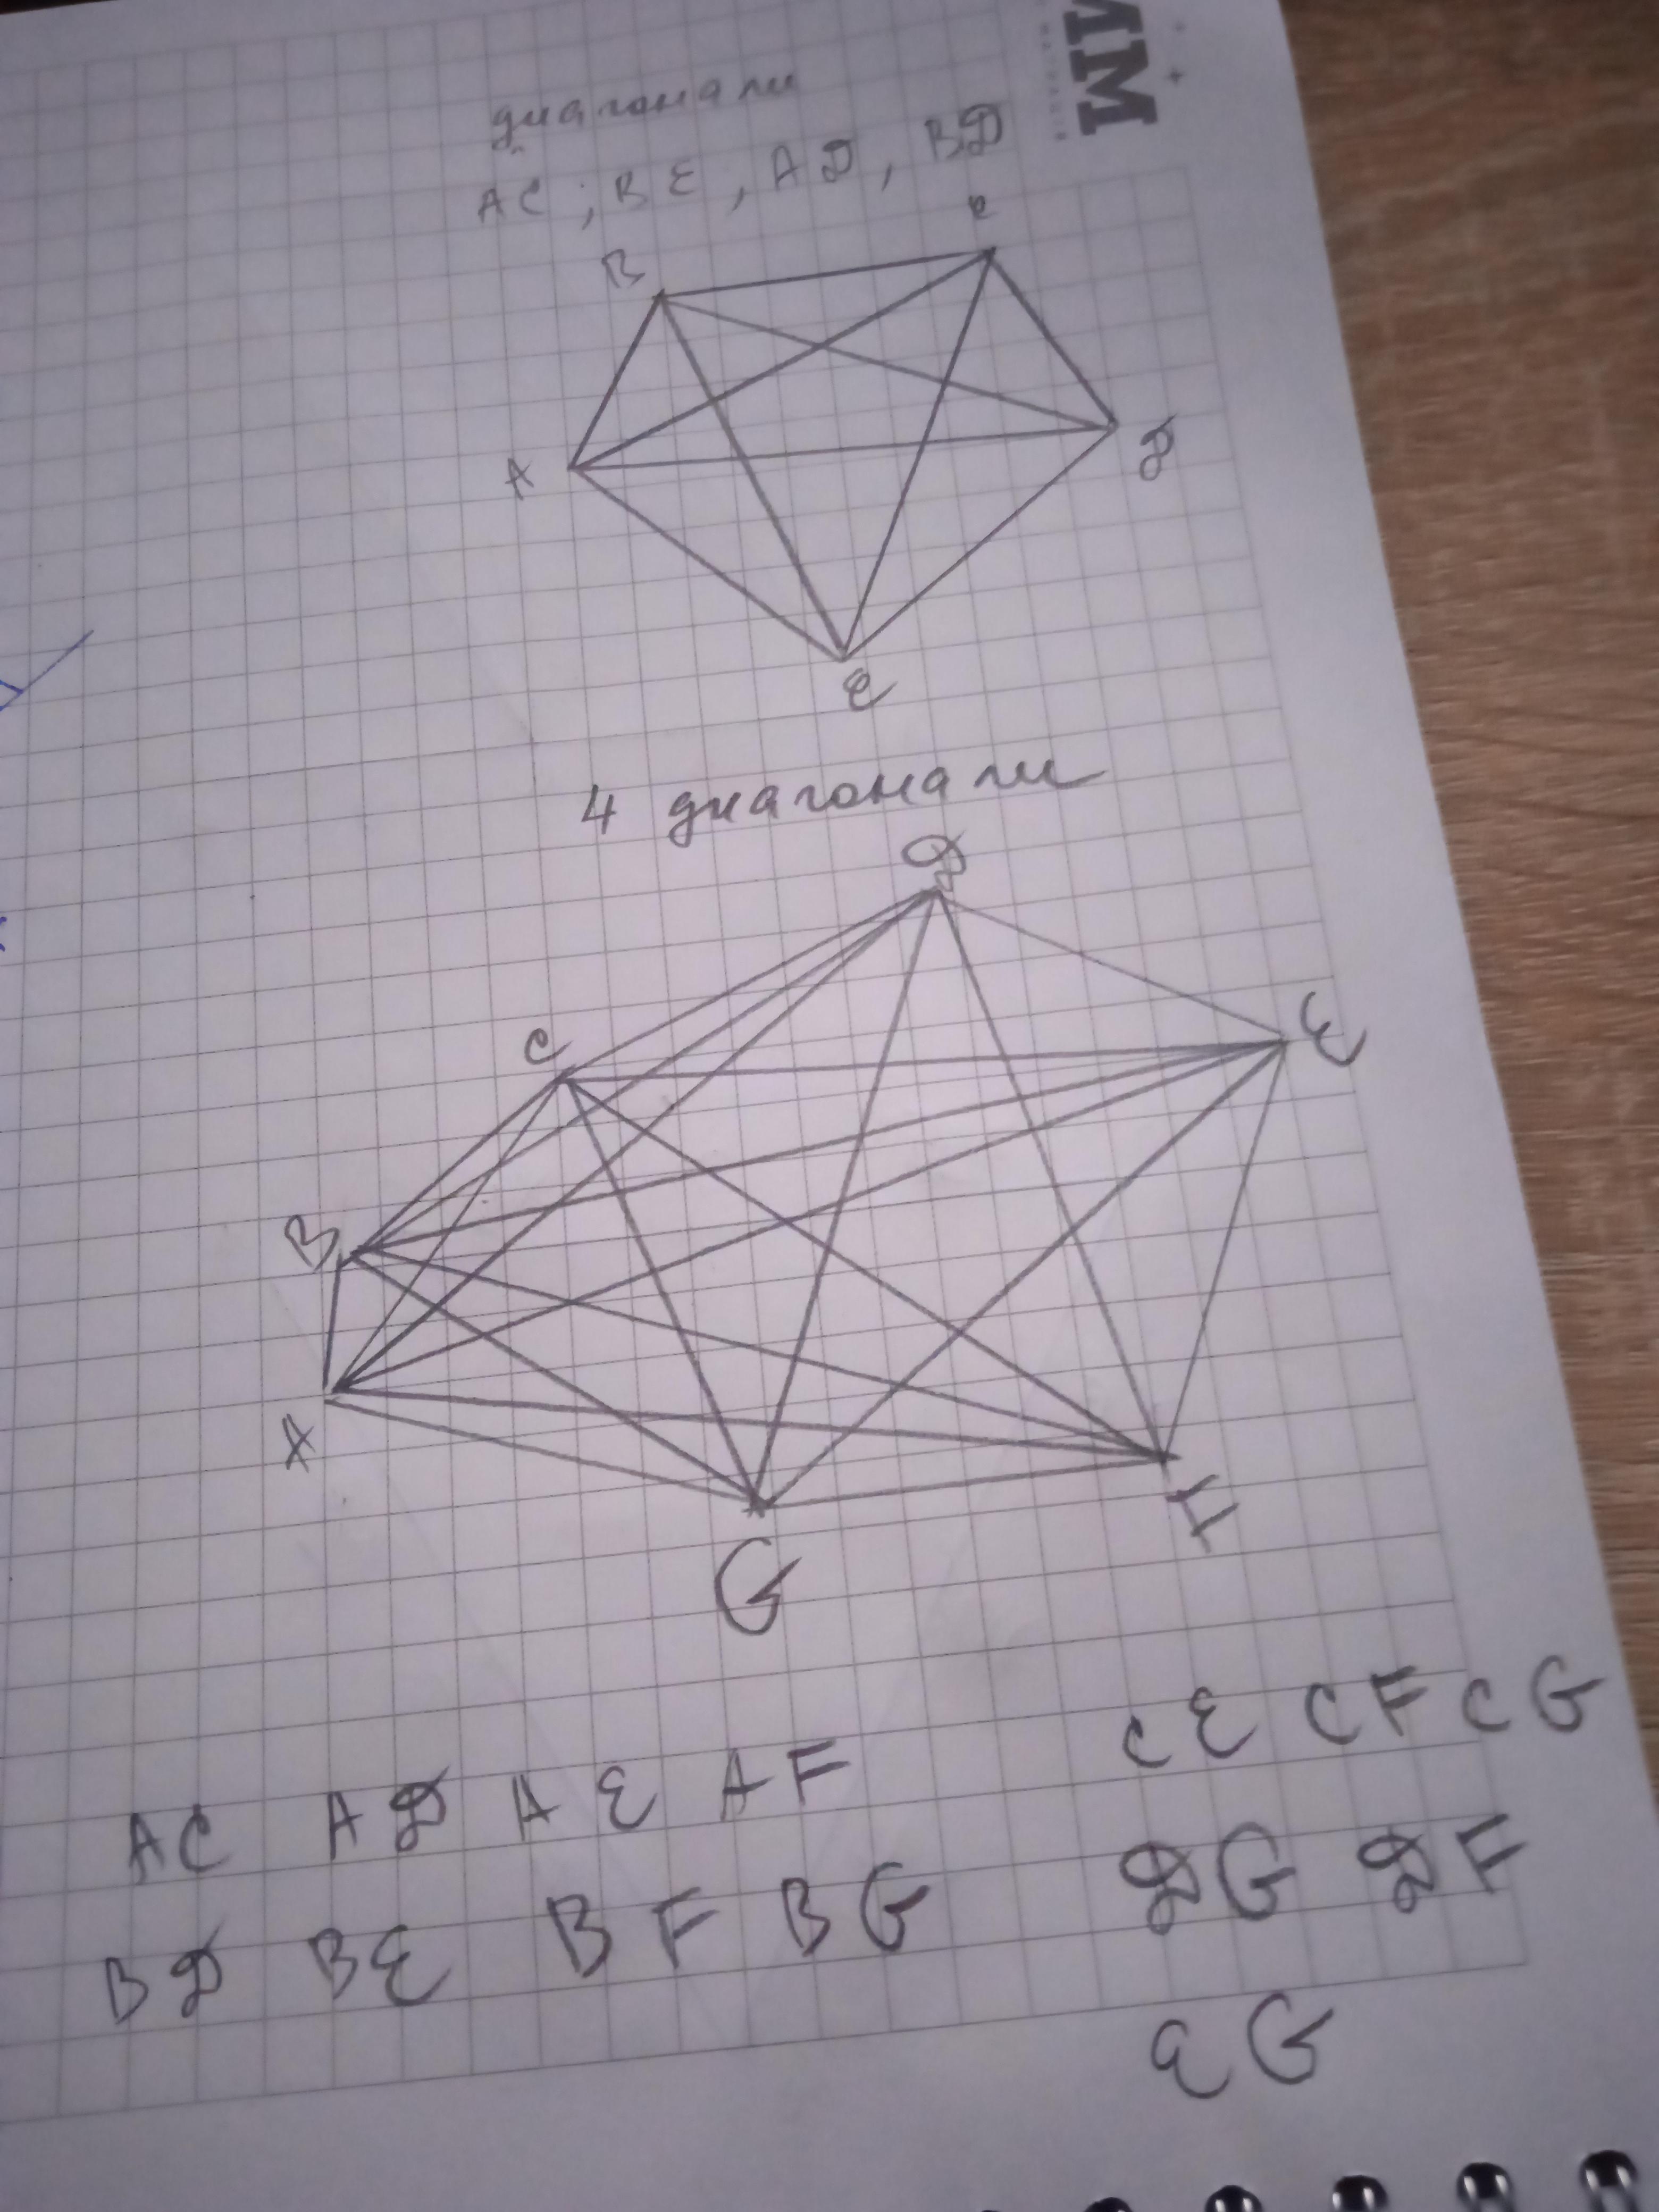 диагонали
AC ; BE , AD , BD
B
C
A
D
E
4 диагонали
D
C
E
B
A
G
F
AC AD AE AF
BD BE BF BG
CE CF CG
DG DF
EG